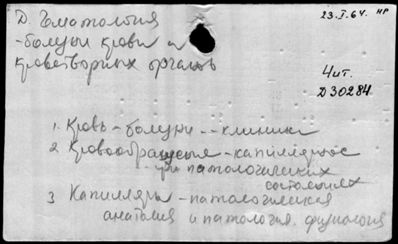 Д. Гематология
23.I.64. НР
-болезни крови и
кроветворных органов
Чит.
Д30284
1. Кровь - болезни -- клиника
2 Кровообращение - капиллярное
-- при патологических
состояниях
3 Капилляры - патологическая
анатомия и патология. физиология